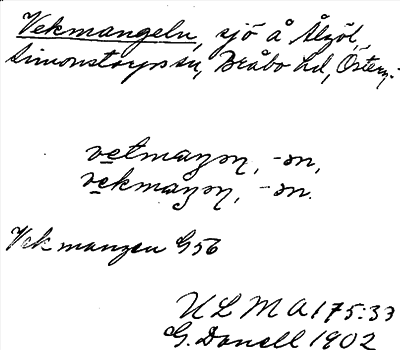 Vekmangeln, sjö å Älgöl,
Simonstorps sn, Bråbo hd, Österg.
vetmaŋən, -ən,
vekmaŋən, -ən.
Vekmangen G56
ULMA 175:33
G. Danell 1902